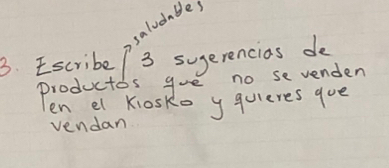 saludables
3. Escribe 3 sugerencias de
productos que no se venden
en el Kiosko y quieres que
vendan